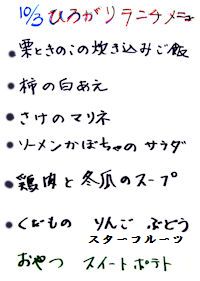 10/3 ひろがりランチメニュー
● 栗ときのこの炊き込みご飯
● 柿の白あえ
● さけのマリネ
● ソーメンかぼちゃのサラダ
● 鶏肉と冬瓜のスープ
● くだもの りんご ぶどう
スターフルーツ
おやつ スイートポテト